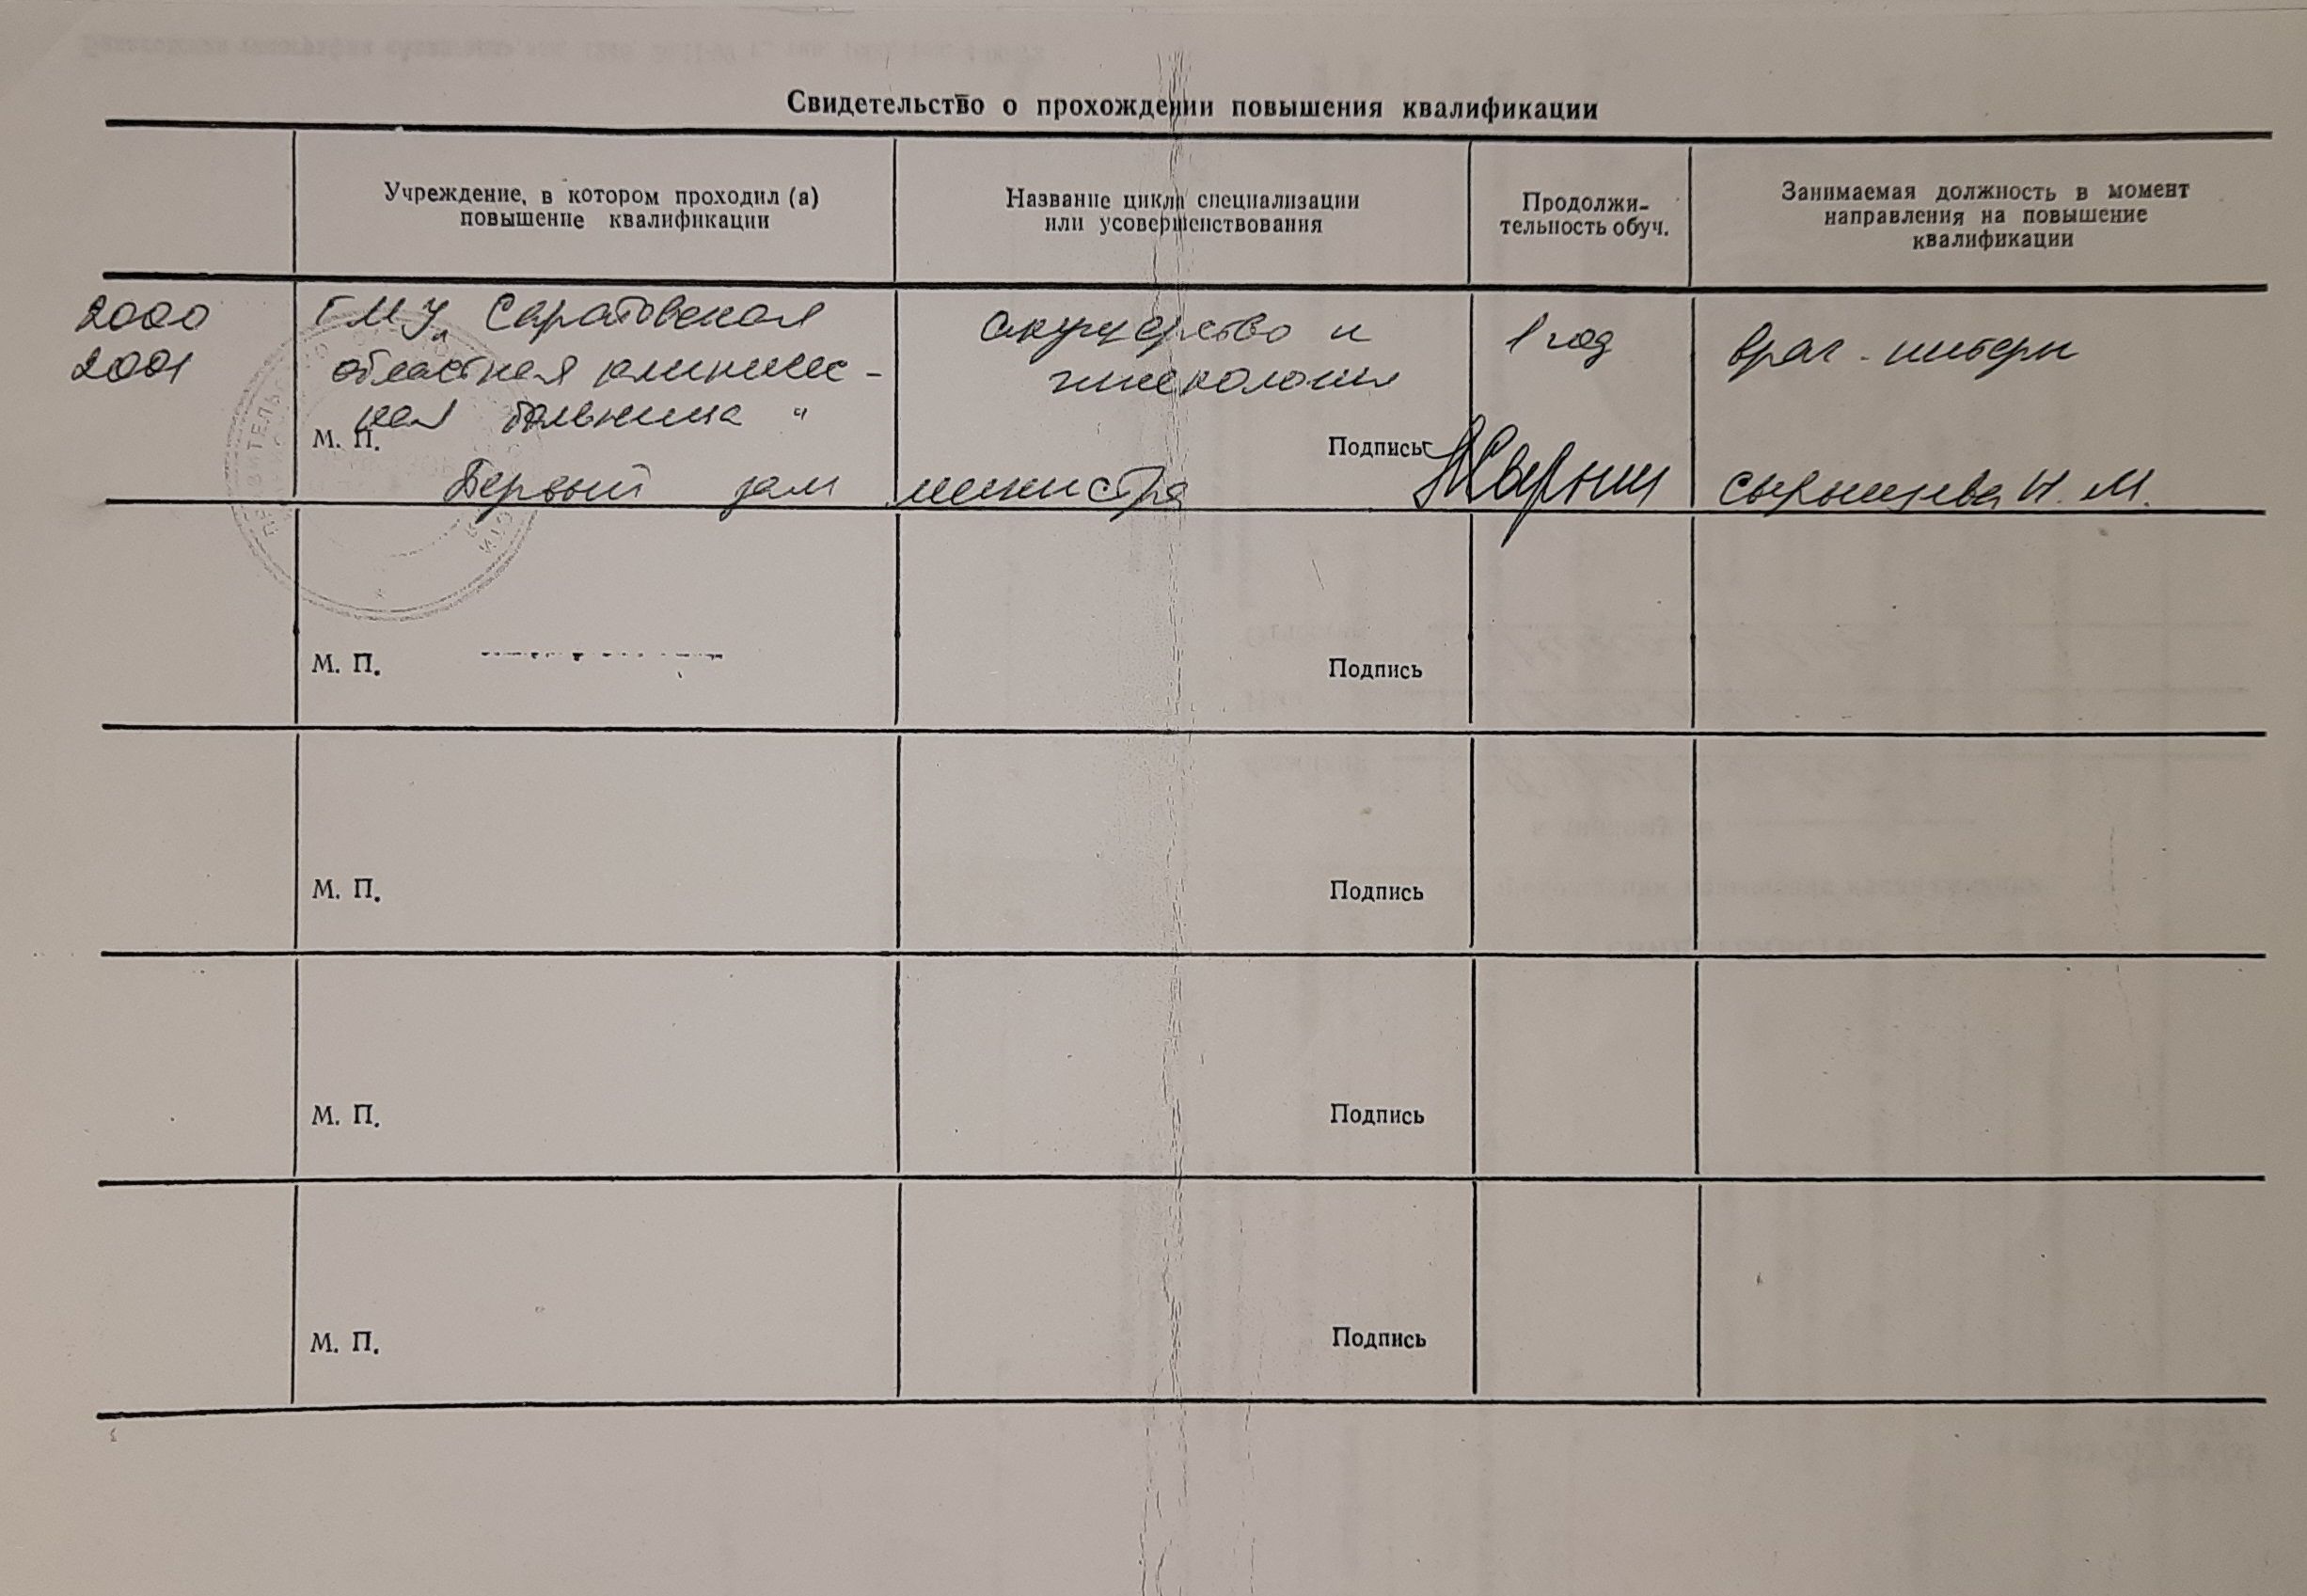 Свидетельство о прохождении повышения квалификации
Учреждение, в котором проходил (а)
повышение квалификации
Название цикла специализации
или усовершенствования
Продолжи-
тельность обуч.
Занимаемая должность в момент
направления на повышение
квалификации
2000
2001
ГМУ „Саратовская
областная клиничес-
кая больница“
М. П.
акушерство и
гинекология
1 год
врач-интерн
Подпись
Первый зам министра
Н. М.
М. П.
Подпись
М. П.
Подпись
М. П.
Подпись
М. П.
Подпись